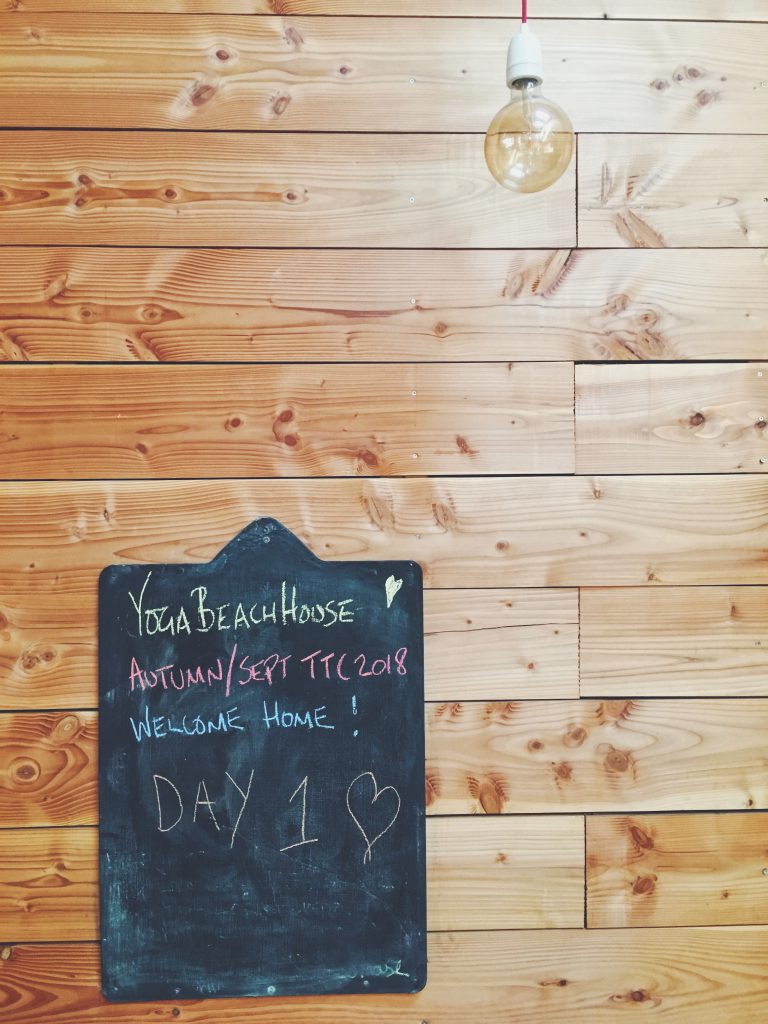 YOGABEACHHOUSE
AUTUMN/SEPT TTC 2018
WELCOME HOME !
DAY 1